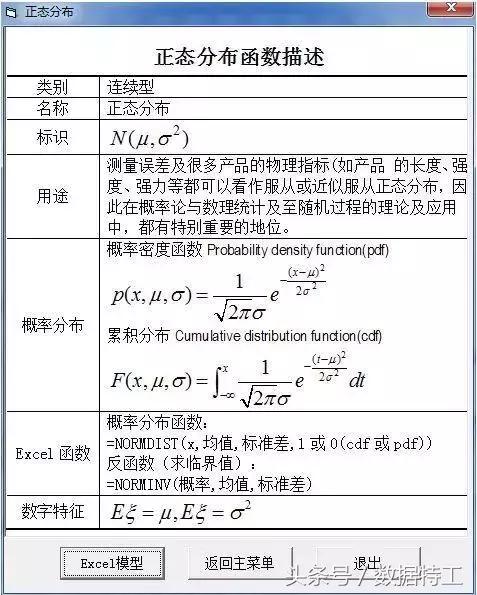 正态分布
正态分布函数描述
类别 连续型
名称 正态分布
标识 N(μ,σ²)
用途 测量误差及很多产品的物理指标(如产品 的长度、强
度、强力等都可以看作服从或近似服从正态分布，因
此在概率论与数理统计及至随机过程的理论及应用
中，都有特别重要的地位。
概率分布
概率密度函数 Probability density function(pdf)
p(x,μ,σ) = 1/(√2πσ) e^(-(x-μ)²/2σ²)
累积分布 Cumulative distribution function(cdf)
F(x,μ,σ) = ∫_{-∞}^{x} 1/(√2πσ) e^(-(t-μ)²/2σ²) dt
Excel 函数
概率分布函数：
=NORMDIST(x,均值,标准差,1或0(cdf或pdf))
反函数（求临界值）：
=NORMINV(概率,均值,标准差)
数字特征 Eξ=μ,Eξ=σ²
Excel模型 返回主菜单 退出
头条号 / 数据特工